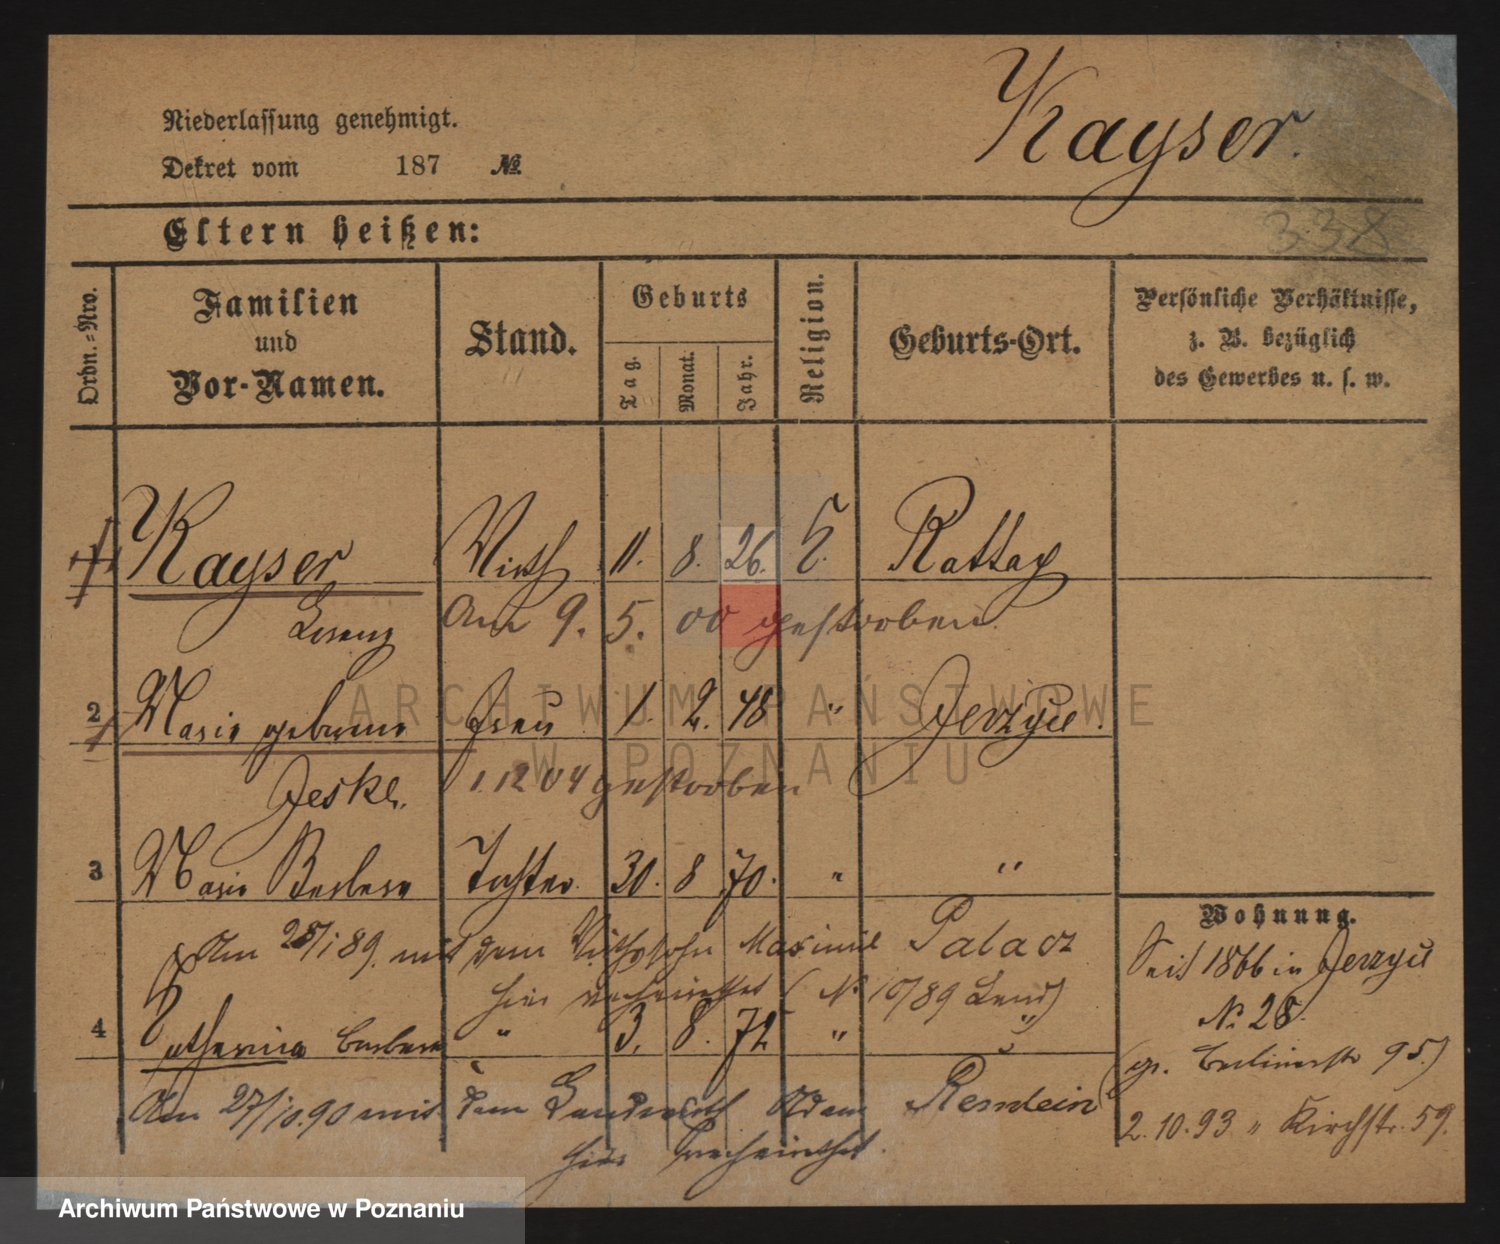 Kayser.
Niederlassung genehmigt.
Dekret vom 187 №
338
Eltern heißen:
Ordn.-Nro.
Familien und Vor-Namen.
Stand.
Geburts
Tag.
Monat.
Jahr.
Religion.
Geburts-Ort.
Persönliche Verhältnisse,
z. B. bezüglich
des Gewerbes u. s. w.
1 Kayser Wirth 11. 8. 26. K. Rattay
Lorenz Am 9. 5. 00 gestorben.
2 Marie geborene Frau 1. 2. 48 " Jerzyce.
Jeske. 1.12 04 gestorben
3 Marie Barbara Tochter 30. 8 70. " "
Am 28/1 89. mit dem Wirthssohn Maximil Palacz
hier verheirathet (№ 10/89 )
4 Katharina Barbara " 3. 8. 72 " "
Am 27/10.90 mit dem Landwirth Adam
hier verheirathet.
Wohnung.
Seit 1866 in Jerzyce
№ 28.
(gr. Berlinerstr 95.)
2.10.93 " Kirchstr. 59.
ARCHIWUM PAŃSTWOWE
W POZNANIU
Archiwum Państwowe w Poznaniu